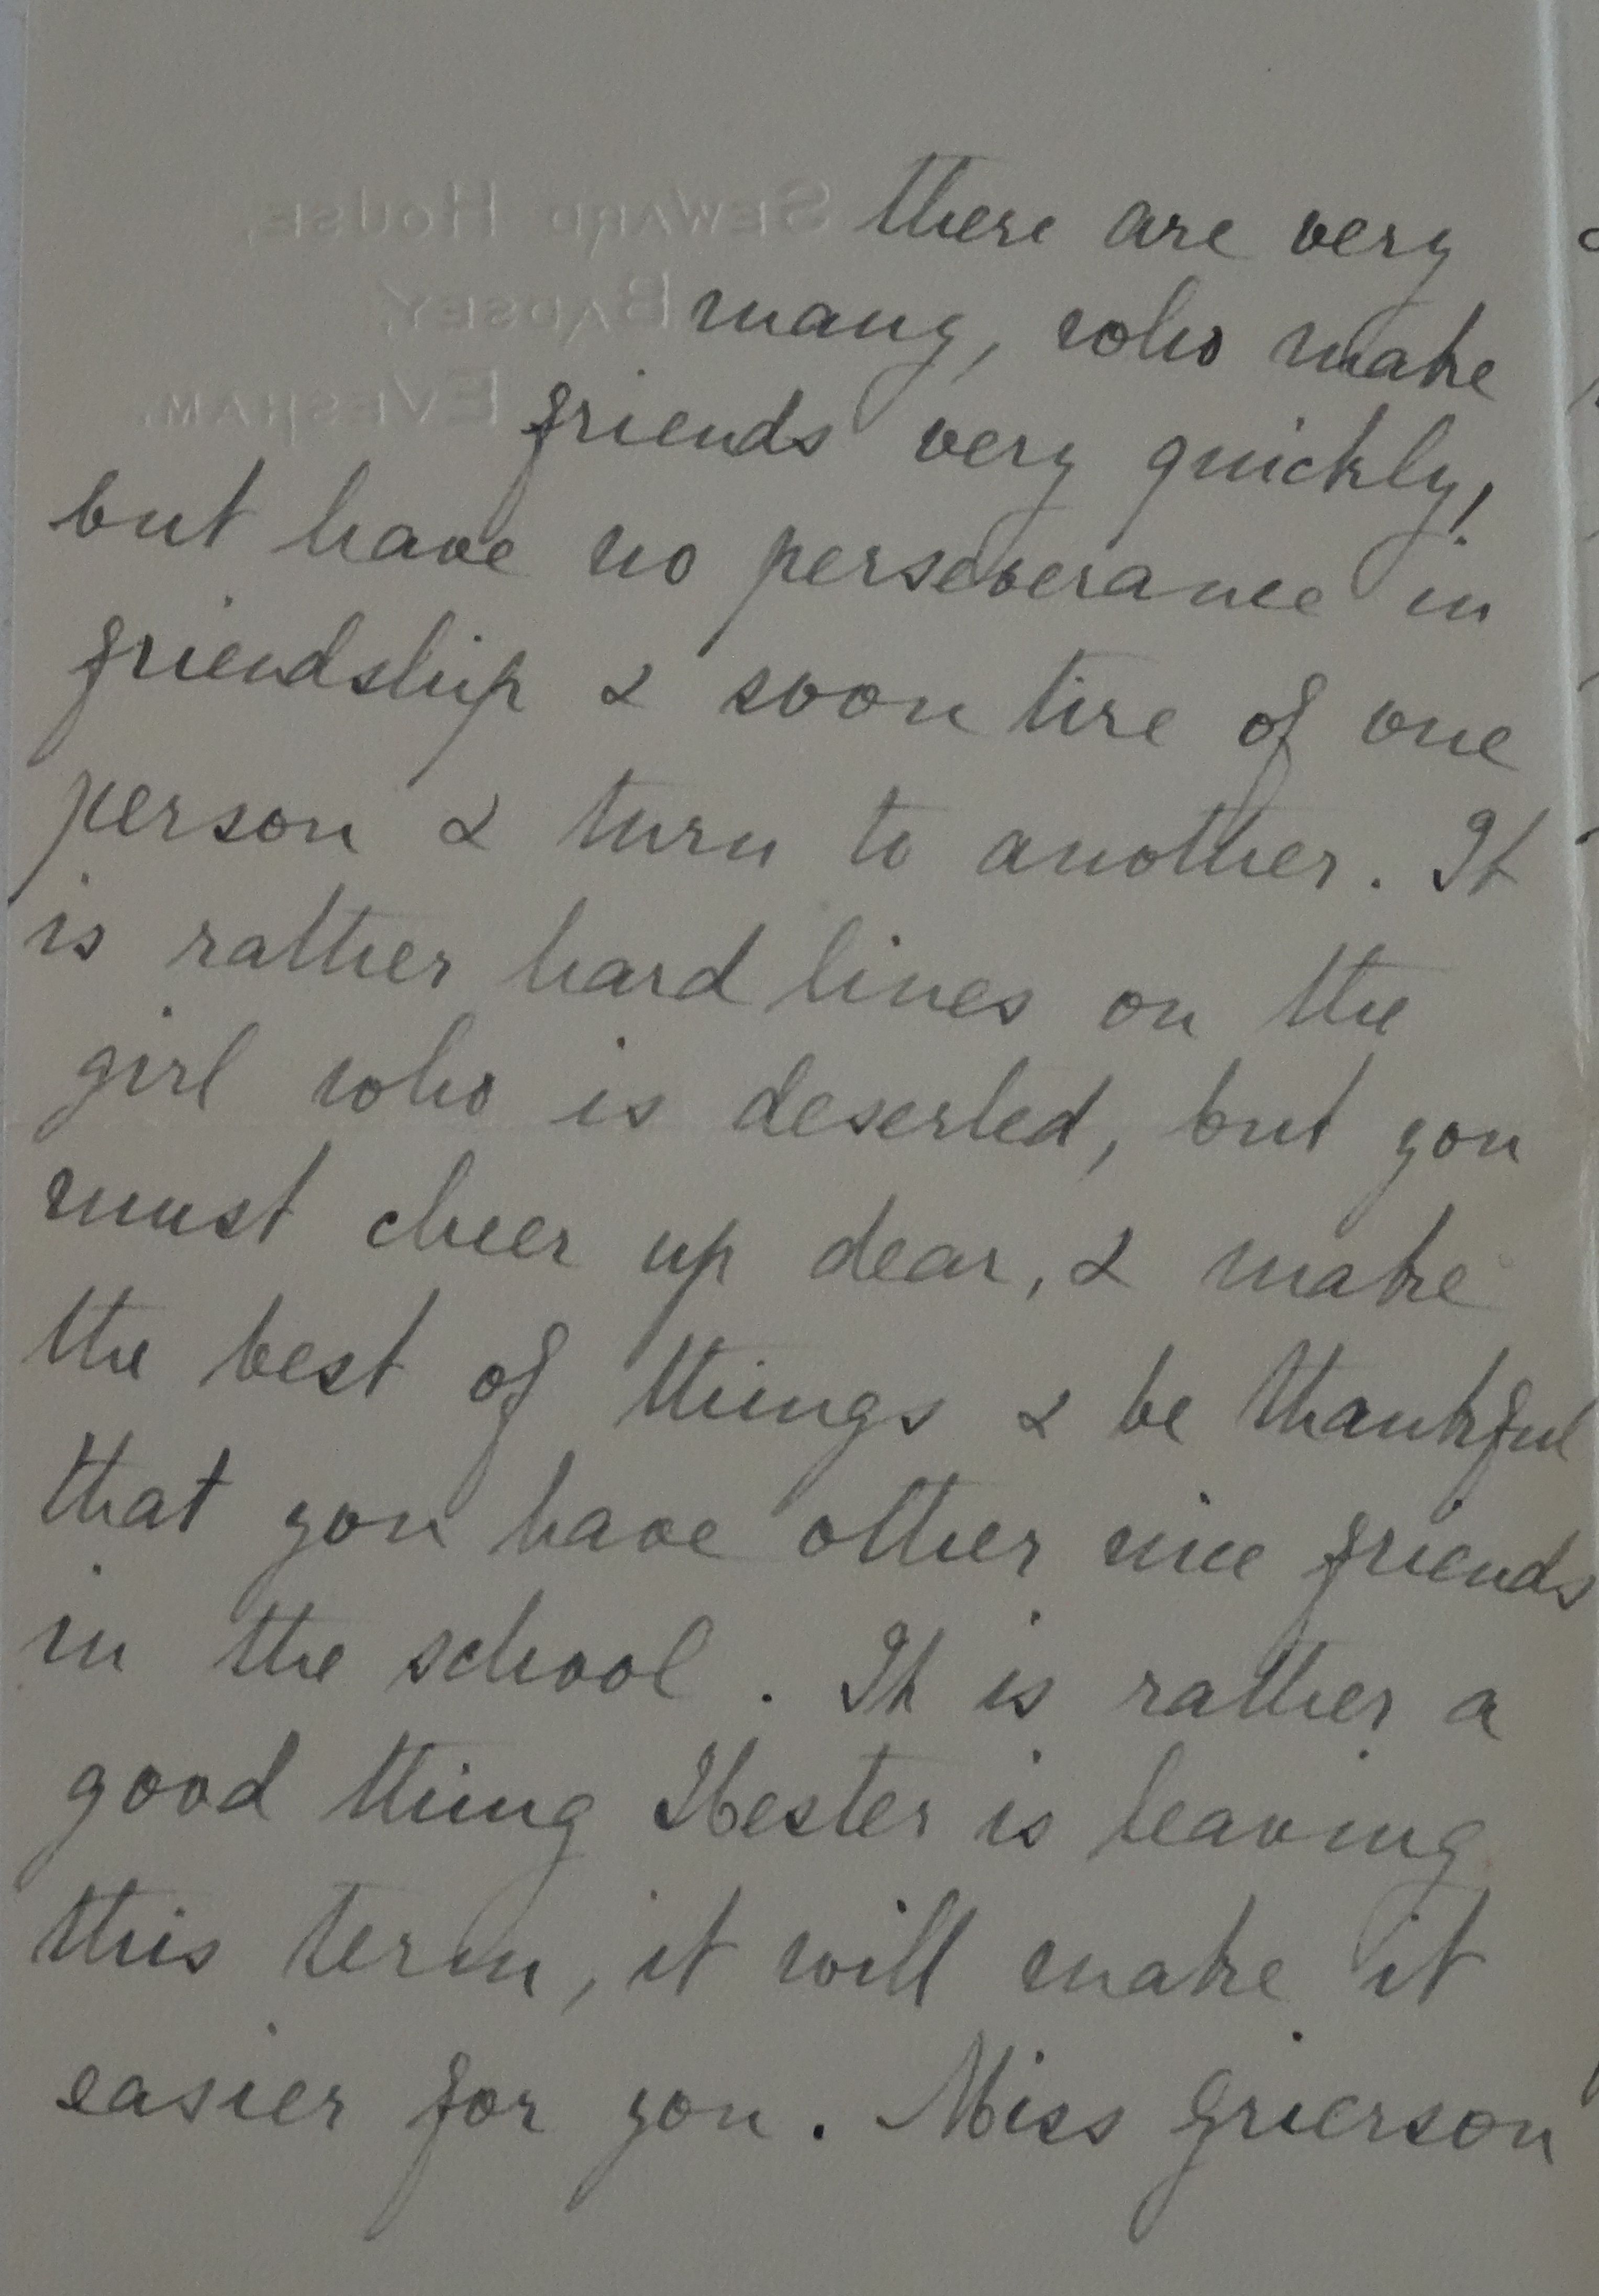 SEWARD HOUSE,
BADSEY,
EVESHAM.
there are very
many, who make
friends very quickly,
but have no perseverance in
friendship & soon tire of one
person & turn to another. It
is rather hard lines on the
girl who is deserted, but you
must cheer up dear, & make
the best of things & be thankful
that you have other nice friends
in the school. It is rather a
good thing Hester is leaving
this term, it will make it
easier for you. Miss Grierson